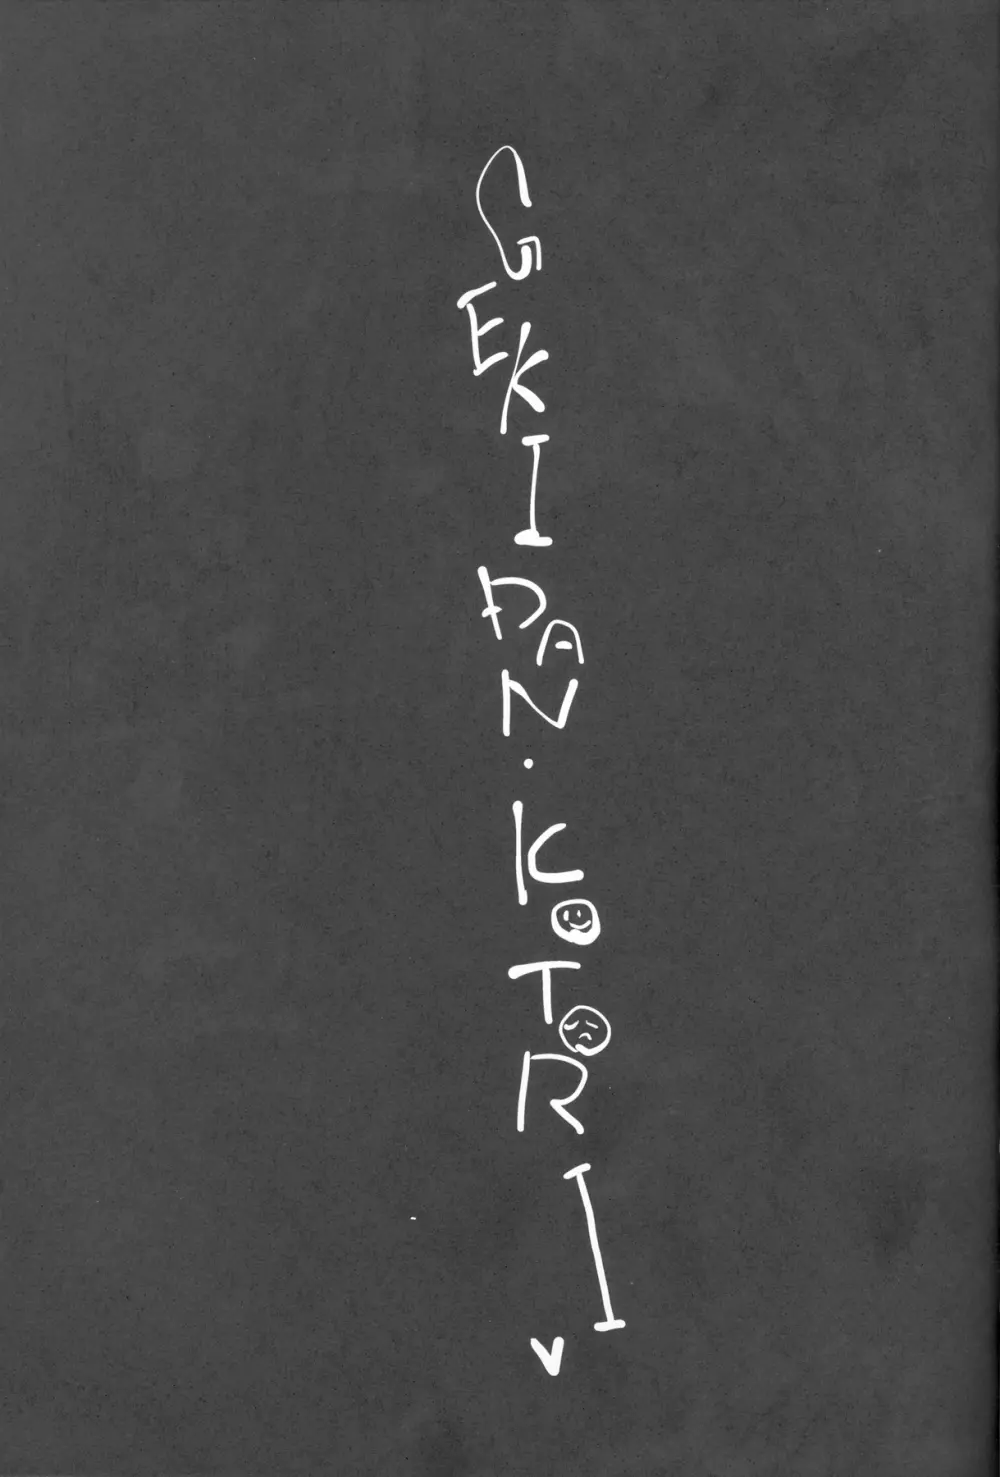 GEKIDAN・KOTORI